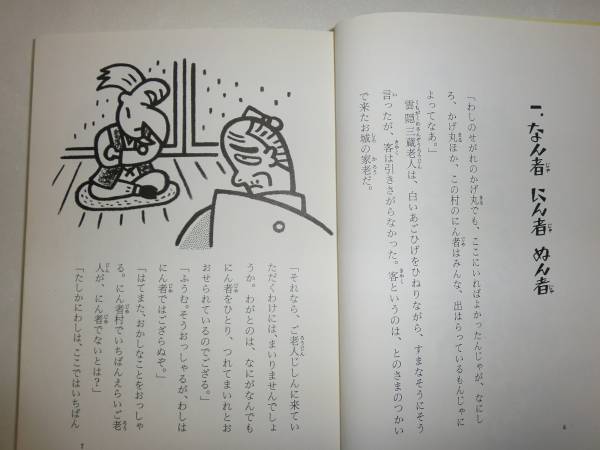 一、なん者 にん者 ぬん者
「わしのせがれのかげ丸でも、ここにいればよかったんじゃが、なにし
ろ、かげ丸ほか、この村のにん者はみんな、出はらっているもんじゃに
よってなあ。」
雲隠三蔵老人は、白いあごひげをひねりながら、すまなそうにそう
言ったが、客は引きさがらなかった。客というのは、とのさまのつかい
で来たお城の家老だ。
6
「それなら、ご老人じしんに来てい
ただくわけには、まいりませんでしょ
うか。わがとのは、なにがなんでも
にん者をひとり、つれてまいれとお
おせられているのでござる。」
「ふうむ。そうおっしゃるが、わしは
にん者ではござらぬぞ。」
「はてまた、おかしなことをおっしゃ
る。にん者村でいちばんえらいご老
人が、にん者でないとは？」
「たしかにわしは、ここではいちばん
7